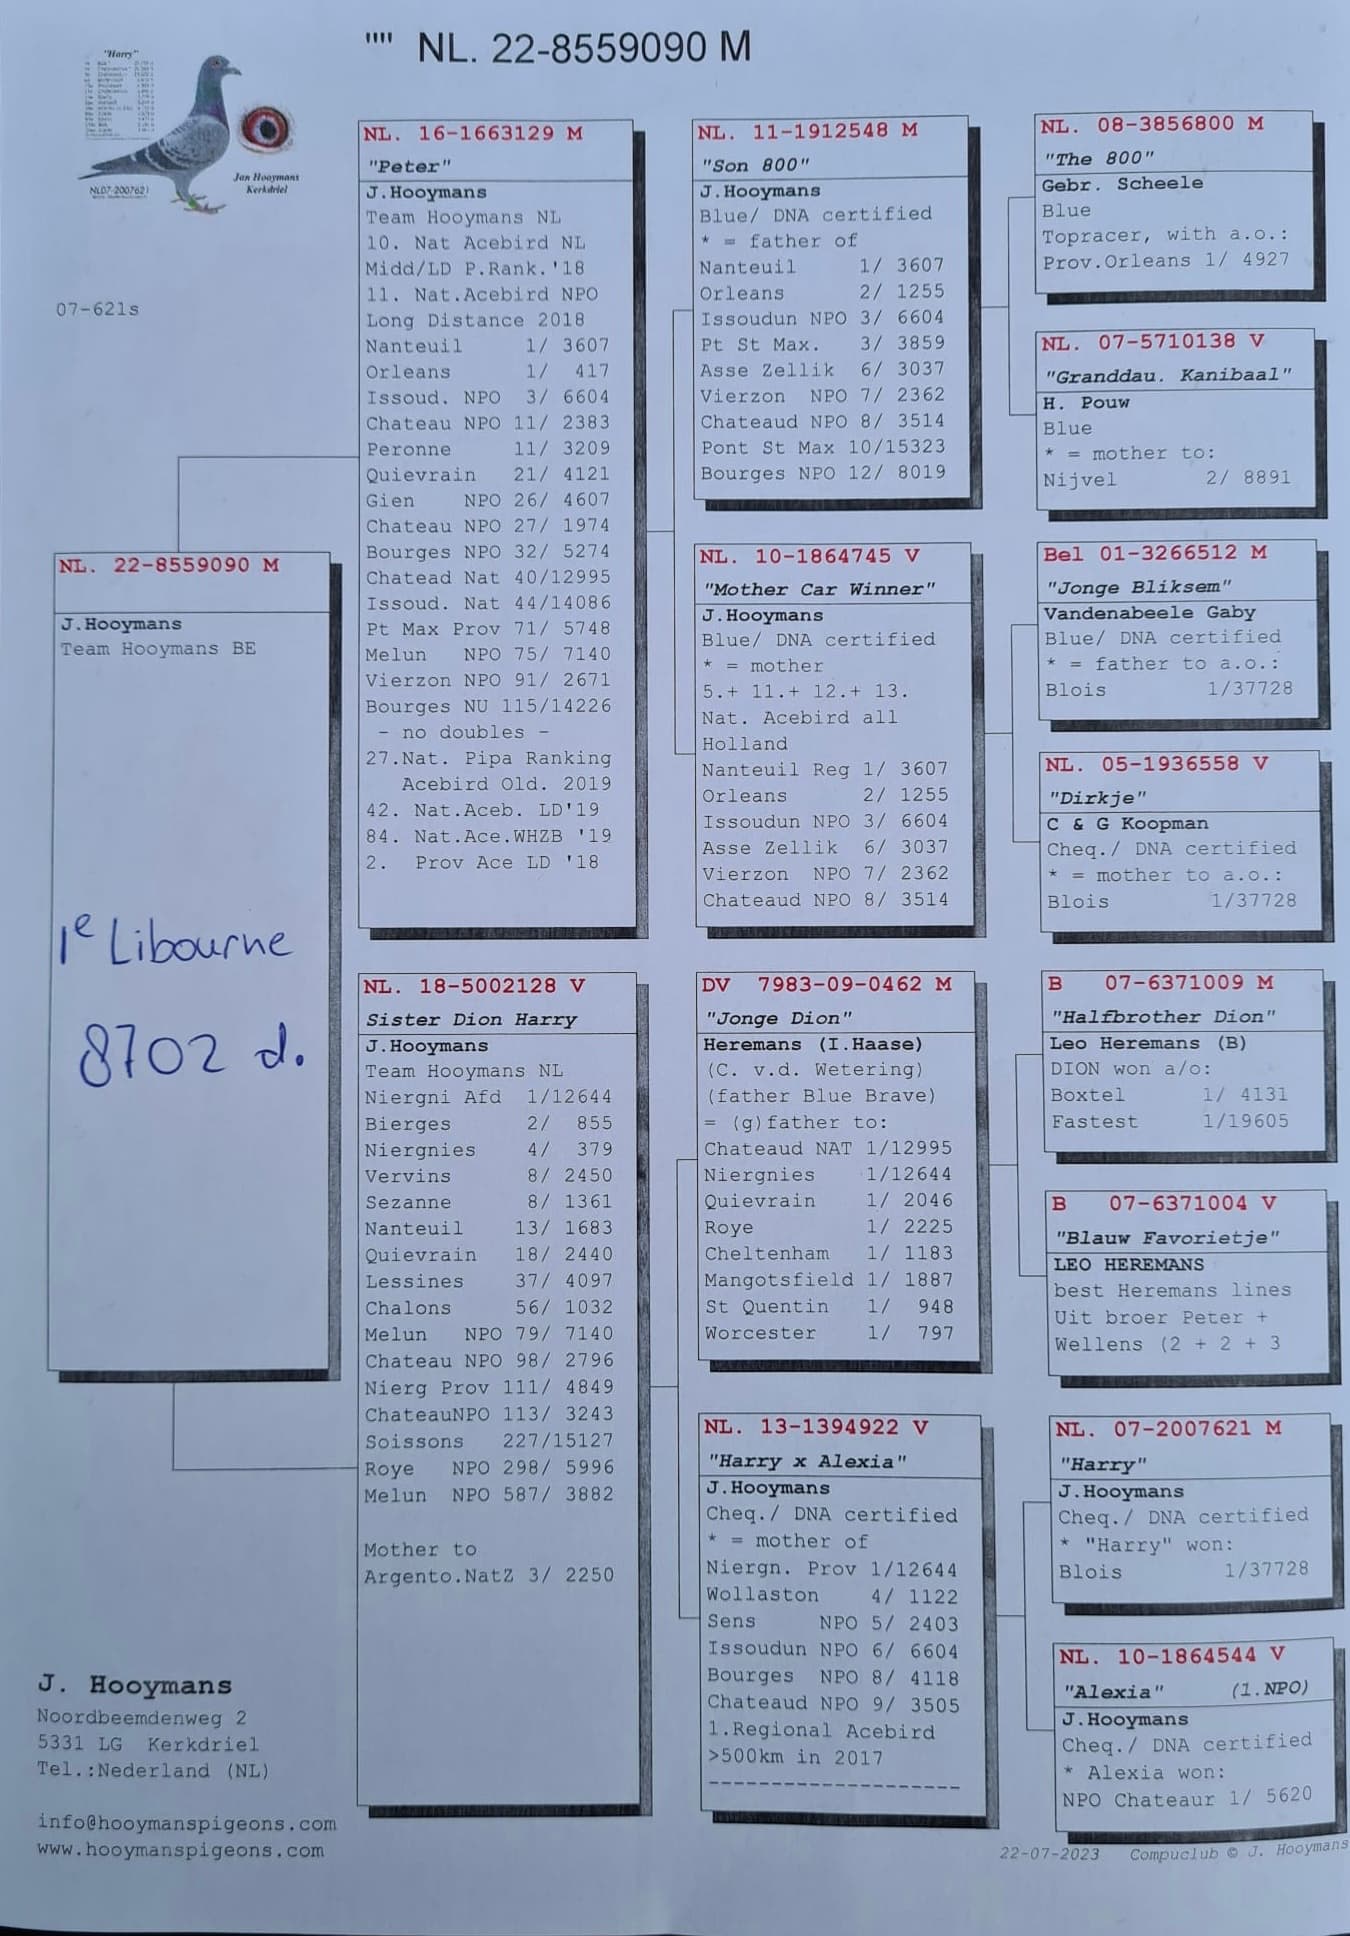 "" NL. 22-8559090 M
"Harry"
NL07-2007621
Jan Hooymans
Kerkdriel
07-621s
NL. 22-8559090 M
J.Hooymans
Team Hooymans BE
1e Libourne
8702 d.
NL. 16-1663129 M
"Peter"
J.Hooymans
Team Hooymans NL
10. Nat Acebird NL
Midd/LD P.Rank.'18
11. Nat.Acebird NPO
Long Distance 2018
Nanteuil 1/ 3607
Orleans 1/ 417
Issoud. NPO 3/ 6604
Chateau NPO 11/ 2383
Peronne 11/ 3209
Quievrain 21/ 4121
Gien NPO 26/ 4607
Chateau NPO 27/ 1974
Bourges NPO 32/ 5274
Chatead Nat 40/12995
Issoud. Nat 44/14086
Pt Max Prov 71/ 5748
Melun NPO 75/ 7140
Vierzon NPO 91/ 2671
Bourges NU 115/14226
- no doubles -
27.Nat. Pipa Ranking
Acebird Old. 2019
42. Nat.Aceb. LD'19
84. Nat.Ace.WHZB '19
2. Prov Ace LD '18
NL. 18-5002128 V
Sister Dion Harry
J.Hooymans
Team Hooymans NL
Niergni Afd 1/12644
Bierges 2/ 855
Niergnies 4/ 379
Vervins 8/ 2450
Sezanne 8/ 1361
Nanteuil 13/ 1683
Quievrain 18/ 2440
Lessines 37/ 4097
Chalons 56/ 1032
Melun NPO 79/ 7140
Chateau NPO 98/ 2796
Nierg Prov 111/ 4849
ChateauNPO 113/ 3243
Soissons 227/15127
Roye NPO 298/ 5996
Melun NPO 587/ 3882
Mother to
Argento.NatZ 3/ 2250
NL. 11-1912548 M
"Son 800"
J.Hooymans
Blue/ DNA certified
* = father of
Nanteuil 1/ 3607
Orleans 2/ 1255
Issoudun NPO 3/ 6604
Pt St Max. 3/ 3859
Asse Zellik 6/ 3037
Vierzon NPO 7/ 2362
Chateaud NPO 8/ 3514
Pont St Max 10/15323
Bourges NPO 12/ 8019
NL. 10-1864745 V
"Mother Car Winner"
J.Hooymans
Blue/ DNA certified
* = mother
5.+ 11.+ 12.+ 13.
Nat. Acebird all
Holland
Nanteuil Reg 1/ 3607
Orleans 2/ 1255
Issoudun NPO 3/ 6604
Asse Zellik 6/ 3037
Vierzon NPO 7/ 2362
Chateaud NPO 8/ 3514
DV 7983-09-0462 M
"Jonge Dion"
Heremans (I.Haase)
(C. v.d. Wetering)
(father Blue Brave)
= (g)father to:
Chateaud NAT 1/12995
Niergnies 1/12644
Quievrain 1/ 2046
Roye 1/ 2225
Cheltenham 1/ 1183
Mangotsfield 1/ 1887
St Quentin 1/ 948
Worcester 1/ 797
NL. 13-1394922 V
"Harry x Alexia"
J.Hooymans
Cheq./ DNA certified
* = mother of
Niergn. Prov 1/12644
Wollaston 4/ 1122
Sens NPO 5/ 2403
Issoudun NPO 6/ 6604
Bourges NPO 8/ 4118
Chateaud NPO 9/ 3505
1.Regional Acebird
>500km in 2017
--------------------
NL. 08-3856800 M
"The 800"
Gebr. Scheele
Blue
Topracer, with a.o.:
Prov.Orleans 1/ 4927
NL. 07-5710138 V
"Granddau. Kanibaal"
H. Pouw
Blue
* = mother to:
Nijvel 2/ 8891
Bel 01-3266512 M
"Jonge Bliksem"
Vandenabeele Gaby
Blue/ DNA certified
* = father to a.o.:
Blois 1/37728
NL. 05-1936558 V
"Dirkje"
C & G Koopman
Cheq./ DNA certified
* = mother to a.o.:
Blois 1/37728
B 07-6371009 M
"Halfbrother Dion"
Leo Heremans (B)
DION won a/o:
Boxtel 1/ 4131
Fastest 1/19605
B 07-6371004 V
"Blauw Favorietje"
LEO HEREMANS
best Heremans lines
Uit broer Peter +
Wellens (2 + 2 + 3
NL. 07-2007621 M
"Harry"
J.Hooymans
Cheq./ DNA certified
* "Harry" won:
Blois 1/37728
NL. 10-1864544 V
"Alexia" (1.NPO)
J.Hooymans
Cheq./ DNA certified
* Alexia won:
NPO Chateaur 1/ 5620
J. Hooymans
Noordbeemdenweg 2
5331 LG Kerkdriel
Tel.:Nederland (NL)
info@hooymanspigeons.com
www.hooymanspigeons.com
22-07-2023 Compuclub © J. Hooymans